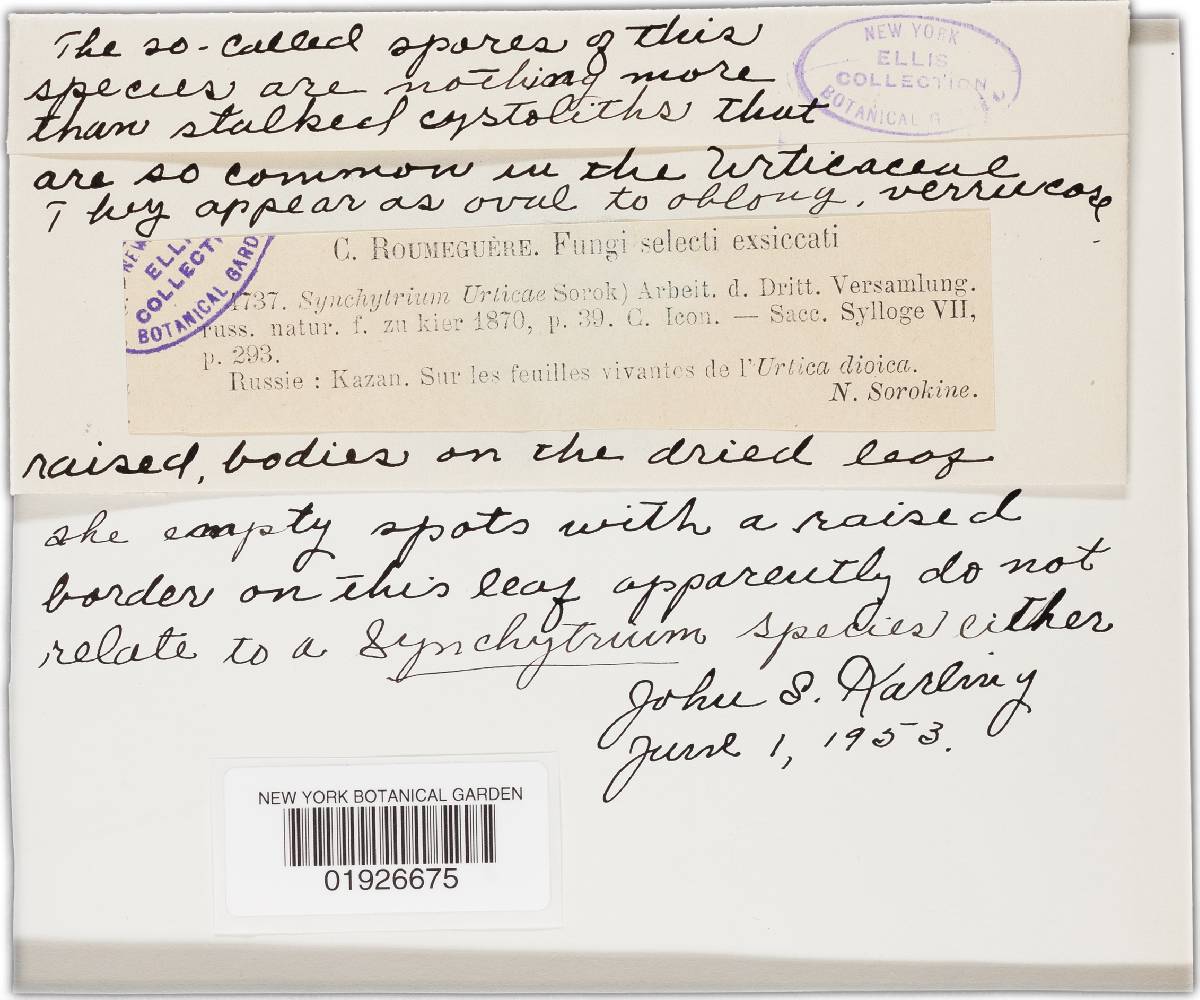 The so-called spores of this
species are nothing more
than stalked cystoliths that
NEW YORK
ELLIS
COLLECTION
BOTANICAL G
are so common in the Urticaceae
They appear as oval to oblong, verrucose
NEW
ELLI
COLLECTI
BOTANICAL GARD
C. ROUMEGUÈRE. Fungi selecti exsiccati
4737. Synchytrium Urticae Sorok) Arbeit. d. Dritt. Versamlung.
russ. natur. f. zu kier 1870, p. 39. C. Icon. — Sacc. Sylloge VII,
p. 293.
Russie : Kazan. Sur les feuilles vivantes de l'Urtica dioica.
N. Sorokine.
raised, bodies on the dried leaf
The empty spots with a raised
border on this leaf apparently do not
relate to a Synchytrium species either
John S. Karling
June 1, 1953.
NEW YORK BOTANICAL GARDEN
01926675